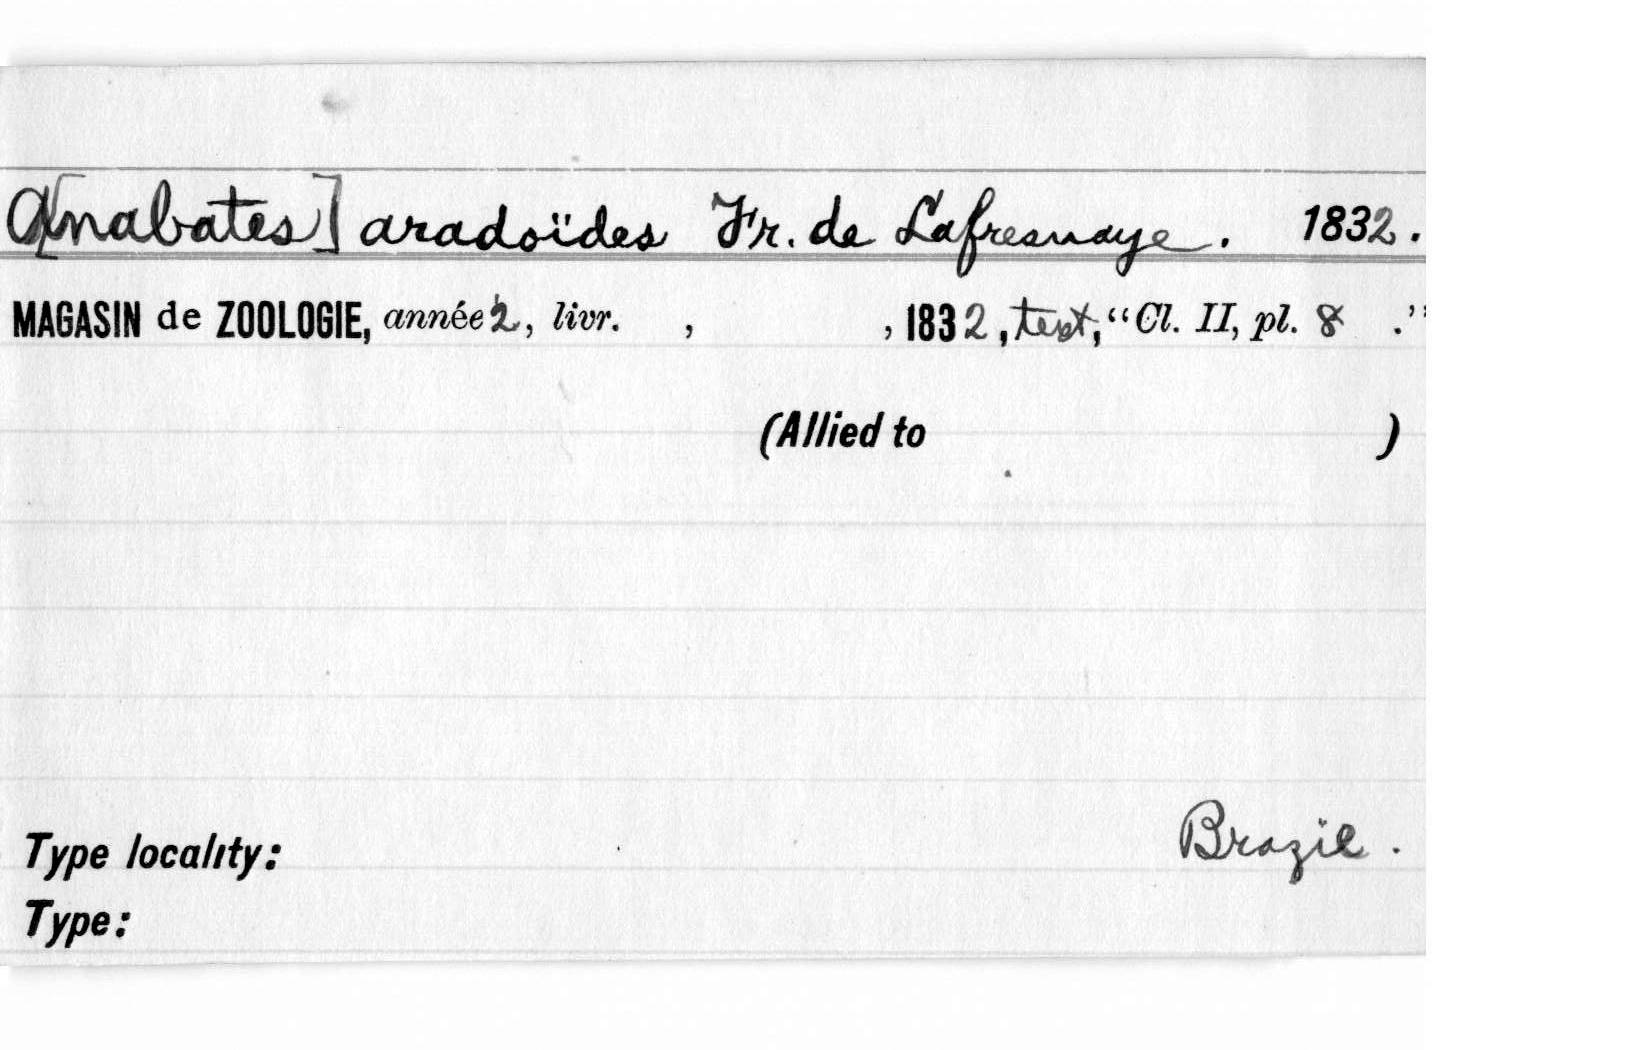 A[nabates] aradoïdes Fr. de Lafresnaye. 1832.
MAGASIN de ZOOLOGIE, année 2, livr. , , 1832, text, "Cl. II, pl. 8 ."
(Allied to )
Type locality: Brazil.
Type: